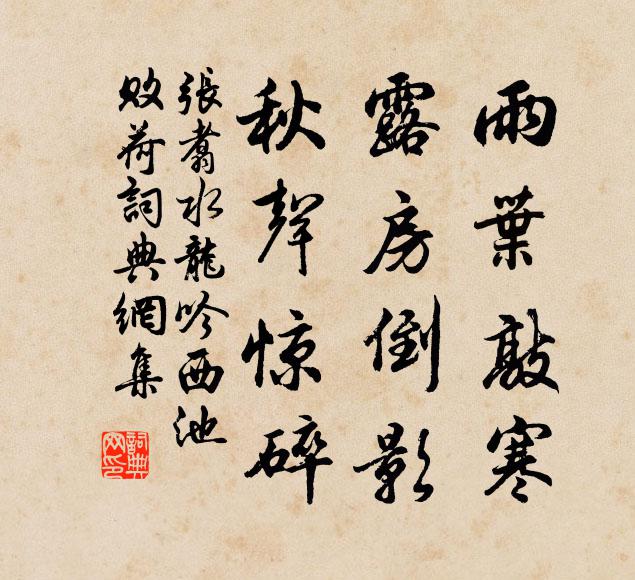 雨葉敲寒
露房倒影
秋聲惊碎
張翥水龍吟西池
敗荷詞典網集
詞典
网印